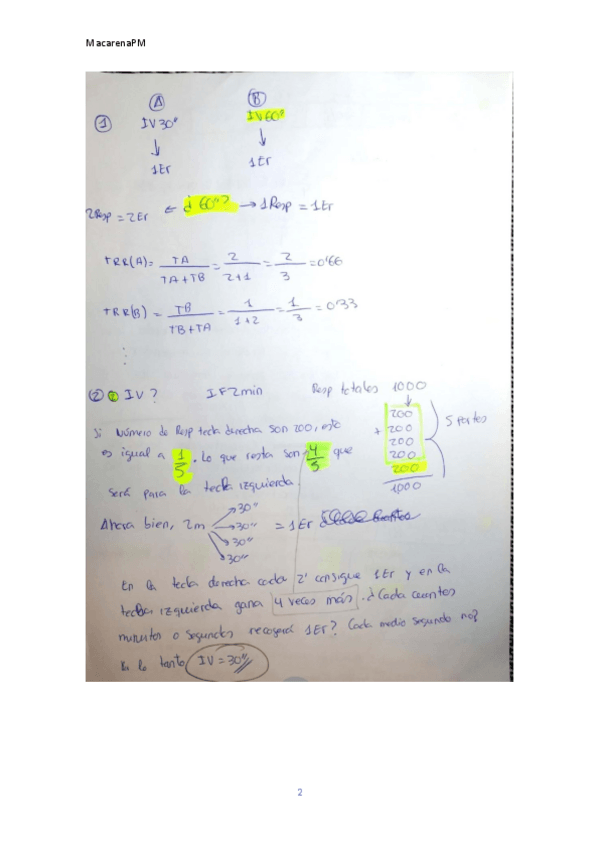 MacarenaPM
A B
1 IV30" IV60"
↓ ↓
1Er 1Er
2Resp = 2Er ← ¿60"? → 1Resp = 1Er
TRR(A) = TA / TA+TB = 2 / 2+1 = 2 / 3 = 0'66
TRR(B) = TB / TB+TA = 1 / 1+2 = 1 / 3 = 0'33
2 IV? IF2min Resp totales 1000
↓
200
+ 200
200
200
200
1000
5 partes
Si número de Resp tecla derecha son 200, esto
es igual a 1/5. Lo que resta son 4/5 que
será para la tecla izquierda.
Ahora bien, 2m → 30" 30" 30" 30" = 1Er
En la tecla derecha cada 2' consigue 1Er y en la
tecla izquierda gana 4 veces más. ¿Cada cuantos
minutos o segundos recogerá 1Er? Cada medio segundo no?
lo tanto IV = 30"
2